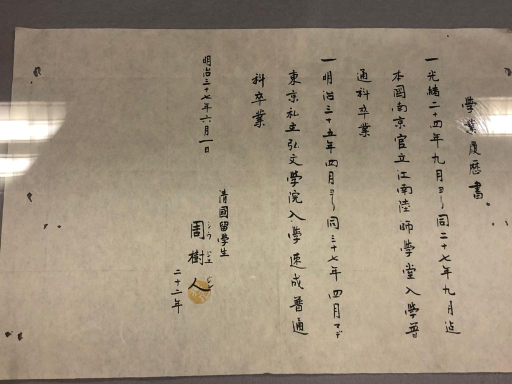 學業履歷書
一光緒二十四年九月ヨリ同二十七年九月迠
本国南京官立江南陸師學堂入學普
通科卒業
一明治三十五年四月ヨリ同三十七年四月マデ
東京私立弘文學院入學速成普通
科卒業
明治三十七年六月一日
清國留學生
周樹人
二十二年